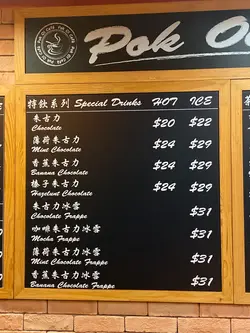 Pok O! Café
Pok O
特飲系列 Special Drinks HOT ICE
朱古力
Chocolate $20 $22
薄荷朱古力
Mint Chocolate $24 $29
香蕉朱古力
Banana Chocolate $24 $29
榛子朱古力
Hazelunt Chocolate $24 $29
朱古力冰雪
Chocolate Frappe $31
咖啡朱古力冰雪
Mocha Frappe $31
薄荷朱古力冰雪
Mint Chocolate Frappe $31
香蕉朱古力冰雪
Banana Chocolate Frappe $31